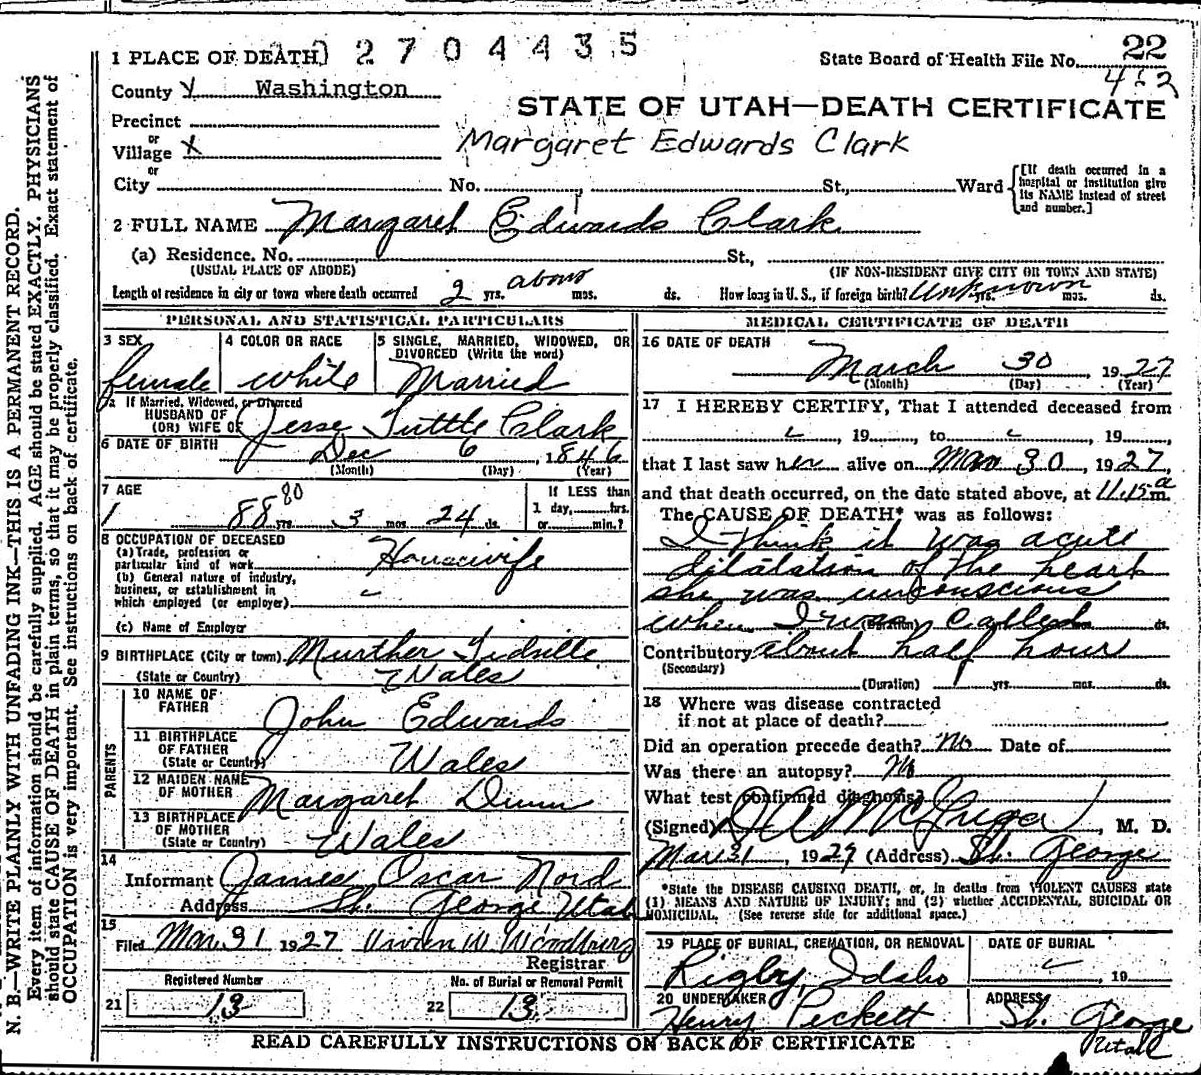 N. B.—WRITE PLAINLY WITH UNFADING INK—THIS IS A PERMANENT RECORD.
Every item of information should be carefully supplied. AGE should be stated EXACTLY. PHYSICIANS
should state CAUSE OF DEATH in plain terms, so that it may be properly classified. Exact statement of
OCCUPATION is very important. See instructions on back of certificate.
1 PLACE OF DEATH 0 2 7 0 4 4 3 5
State Board of Health File No. 22
432
County Y Washington
STATE OF UTAH—DEATH CERTIFICATE
Precinct
or
Village X
Margaret Edwards Clark
or
City No. St., Ward
[If death occurred in a
hospital or institution give
its NAME instead of street
and number.]
2 FULL NAME Margaret Edwards Clark
(a) Residence. No. St.,
(USUAL PLACE OF ABODE) (IF NON-RESIDENT GIVE CITY OR TOWN AND STATE)
Length of residence in city or town where death occurred 2 yrs. about mos. ds. How long in U. S., if foreign birth? Unknown yrs. mos. ds.
PERSONAL AND STATISTICAL PARTICULARS
3 SEX 4 COLOR OR RACE 5 SINGLE, MARRIED, WIDOWED, OR
DIVORCED (Write the word)
female white Married
5a If Married, Widowed, or Divorced
HUSBAND OF
(OR) WIFE OF Jesse Tuttle Clark
6 DATE OF BIRTH Dec 6, 1846
(Month) (Day) (Year)
7 AGE If LESS than
80
88 yrs. 3 mos. 24 ds. 1 day, hrs.
or min.?
8 OCCUPATION OF DECEASED
(a) Trade, profession or
particular kind of work Housewife
(b) General nature of industry,
business, or establishment in
which employed (or employer)
(c) Name of Employer
9 BIRTHPLACE (City or town) Murther Tidville
(State or Country) Wales
PARENTS
10 NAME OF
FATHER John Edwards
11 BIRTHPLACE
OF FATHER
(State or Country) Wales
12 MAIDEN NAME
OF MOTHER Margaret Dunn
13 BIRTHPLACE
OF MOTHER
(State or Country) Wales
14
Informant James Oscar Nord
Address St. George Utah
15
Filed Mar. 31 1927 Vivian W Woodbury
Registrar
Registered Number No. of Burial or Removal Permit
21 13 22 13
MEDICAL CERTIFICATE OF DEATH
16 DATE OF DEATH
March 30, 1927
(Month) (Day) (Year)
17 I HEREBY CERTIFY, That I attended deceased from
, 19 , to , 19 ,
that I last saw her alive on Mar 30, 1927,
and that death occurred, on the date stated above, at 11.15 a m.
The CAUSE OF DEATH* was as follows:
I think it was acute
dilalation of the heart
she was unconscious
when I was called
(Duration) ds.
Contributory about half hour
(Secondary)
(Duration) yrs. mos. ds.
18 Where was disease contracted
if not at place of death?
Did an operation precede death? No Date of
Was there an autopsy? No
What test confirmed diagnosis?
(Signed) D A McGregor, M. D.
Mar 31, 1927 (Address) St. George
*State the DISEASE CAUSING DEATH, or, in deaths from VIOLENT CAUSES state
(1) MEANS AND NATURE OF INJURY; and (2) whether ACCIDENTAL, SUICIDAL OR
HOMICIDAL. (See reverse side for additional space.)
19 PLACE OF BURIAL, CREMATION, OR REMOVAL DATE OF BURIAL
Rigby, Idaho , 19
20 UNDERTAKER ADDRESS
Henry Pickett St. George
Utah
READ CAREFULLY INSTRUCTIONS ON BACK OF CERTIFICATE